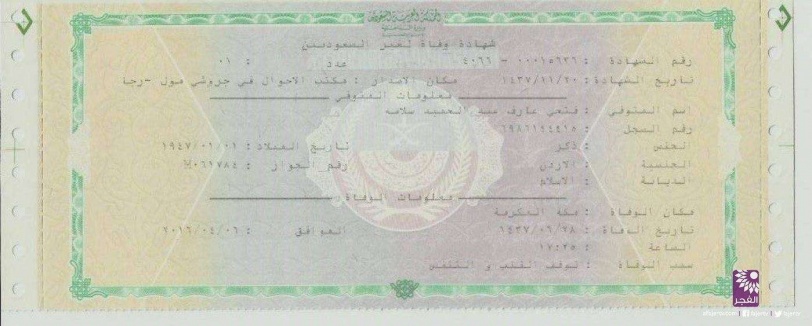 المملكة العربية السعودية
شهادة وفاة لغير السعوديين
رقم الشهادة : ٠٠٠١٥٦٢٦ - ٤٠٦٦ عدد : ٠١
تاريخ الشهادة : ١٤٣٧/١١/٢٠ مكان الاصدار : مكتب الاحوال في
معلومات المتوفي
اسم المتوفي : فتحي عارف عبد الحميد سلامه
رقم السجل :
الجنس : ذكر تاريخ الميلاد : ١٩٤٧/٠١/٠١
الجنسية : الاردن رقم الجواز :
الديانة : الاسلام
معلومات الوفاة
مكان الوفاة : مكة المكرمة
تاريخ الوفاة : ١٤٣٧/٠٦/٢٨ الموافق : ٢٠١٦/٠٤/٠٦
الساعة : ١٧:٢٥
سبب الوفاة : توقف القلب و التنفس
الفجر